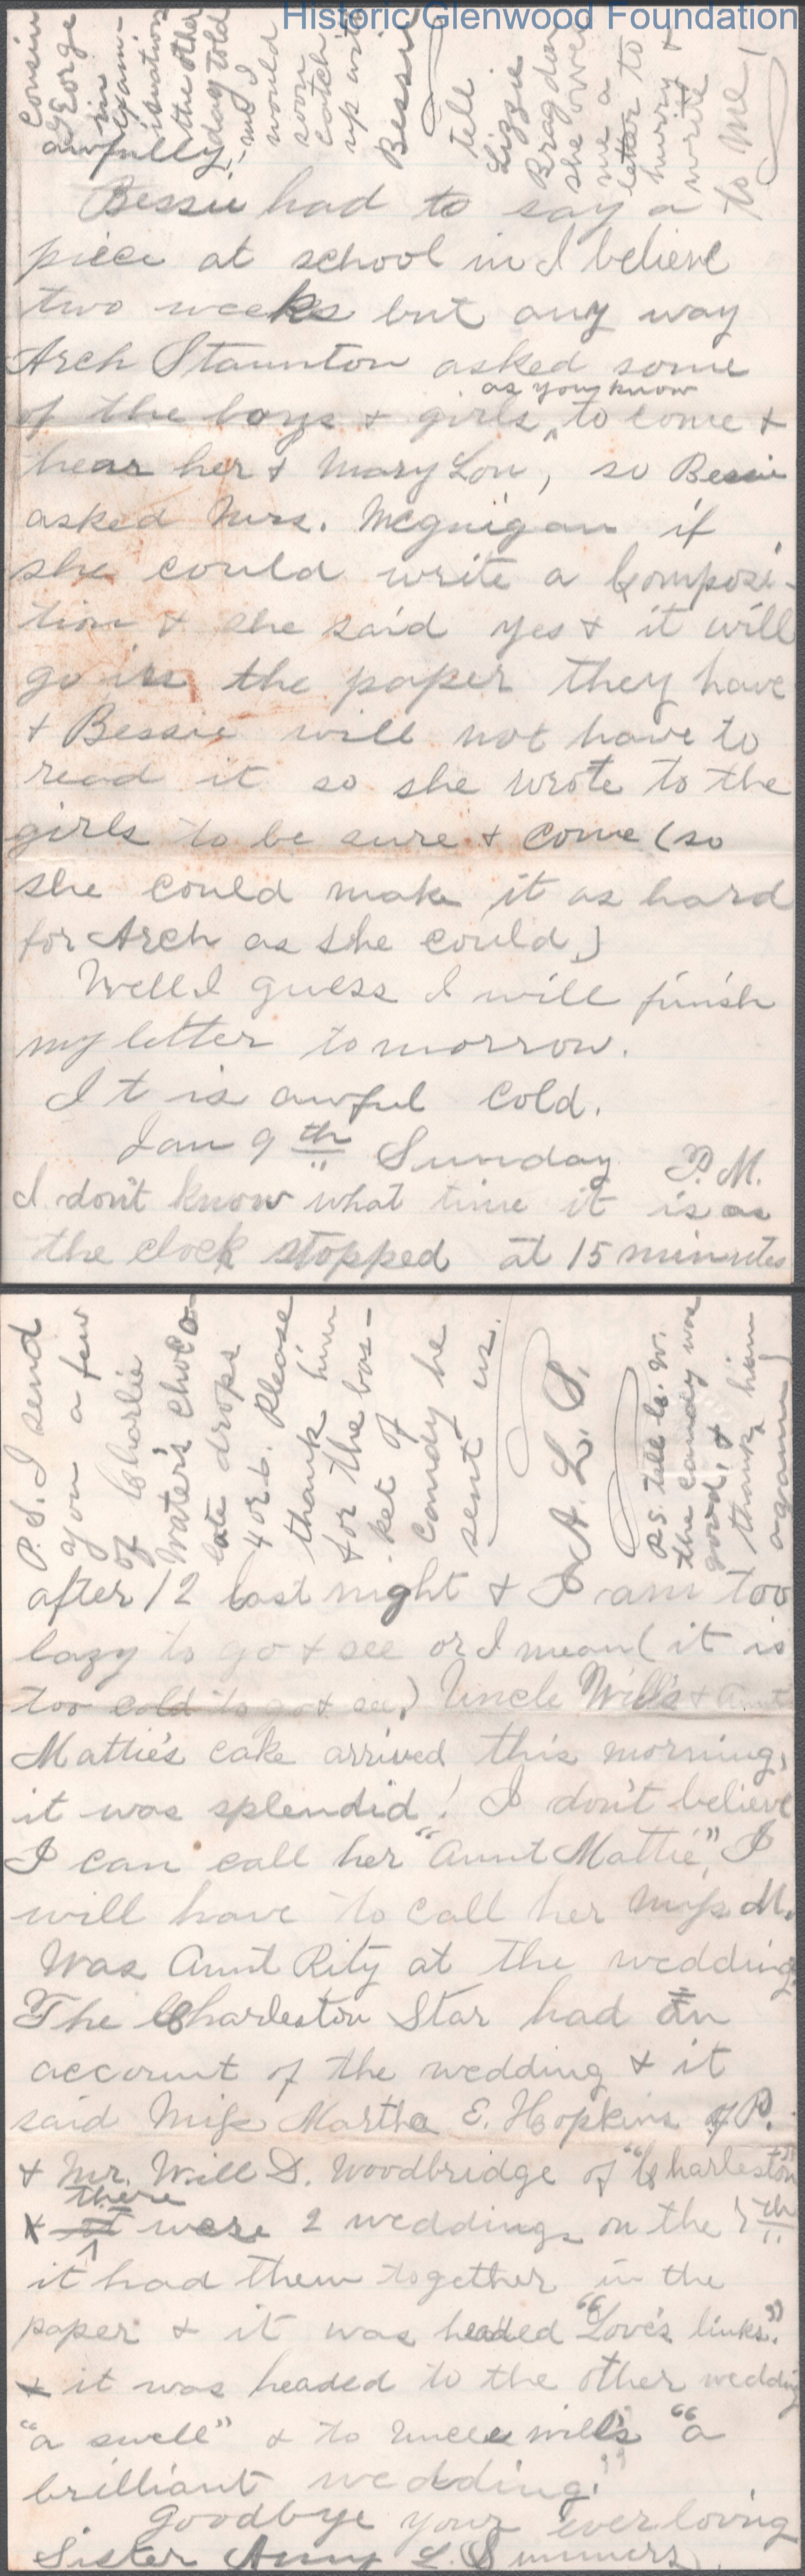 Historic Glenwood Foundation
Cousin
George
in
exam-
ination
the other
day told
me I
would
soon
catch
up with
Bessie
tell
Lizzie
Bragdon
she owes
me a
letter to
hurry &
write
to me!
awfully.
Bessie had to say a
piece at school in I believe
two weeks but any way
Arch Staunton asked some
as you know
of the boys & girls, to come &
hear her & Mary Lou, so Bessie
asked Mrs. Mcguigan if
she could write a Composi-
tion & she said yes & it will
go in the paper they have
& Bessie will not have to
read it so she wrote to the
girls to be sure & come (so
she could make it as hard
for Arch as she could.)
Well I guess I will finish
my letter tomorrow.
It is awful cold.
Jan 9th Sunday P.M.
I don't know what time it is as
the clock stopped at 15 minutes
P.S. I send
you a few
of Charlie
Water's choco-
late drops
4 or 6. Please
thank him
for the bas-
ket of
candy he
sent us.
A. L. S.
P.S. tell C. W.
the candy was
good, &
thank him
again
after 12 last night & I am too
lazy to go & see or I mean (it is
too cold to go & see.) Uncle Will's & Aunt
Mattie's cake arrived this morning,
it was splendid! I don't believe
I can call her "Aunt Mattie", I
will have to call her Miss M.
Was Aunt Rity at the wedding
The Charleston Star had an
account of the wedding & it
said Miss Martha E. Hopkins of P.
& Mr. Will D. Woodbridge of "Charleston"
there
& it were 2 weddings on the 5th
it had them together in the
paper & it was headed "Love's links."
& it was headed to the other wedding
"a swell" & to Uncle Will's "a
brilliant wedding."
Goodbye your ever loving
Sister Amy L. Summers.